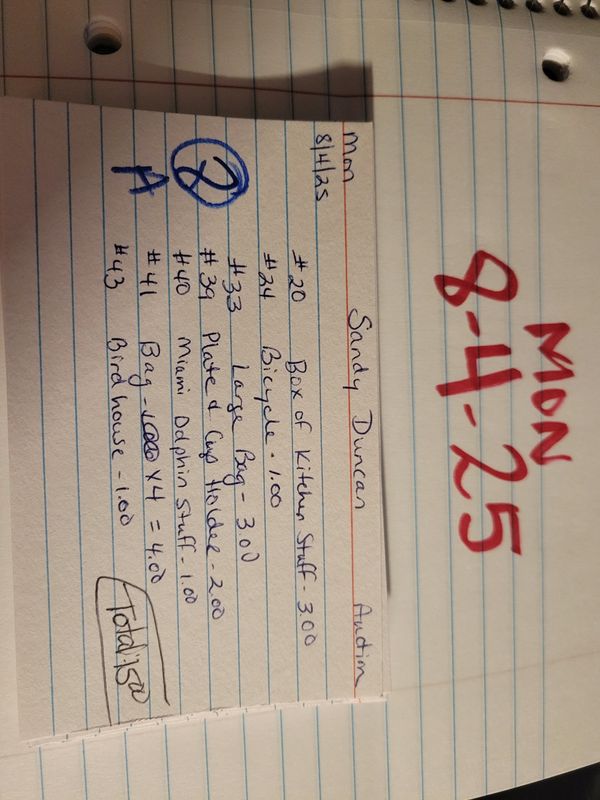 MON
8-4-25
Mon Sandy Duncan Auction
8/4/25
#20 Box of Kitchen Stuff - 3.00
#24 Bicycle - 1.00
#33 Large Bag - 3.00
#39 Plate & Cup Holder - 2.00
#40 Miami Dolphin Stuff - 1.00
#41 Bag - 1.00 x 4 = 4.00
#43 Birdhouse - 1.00
2
A
Total: 15.00